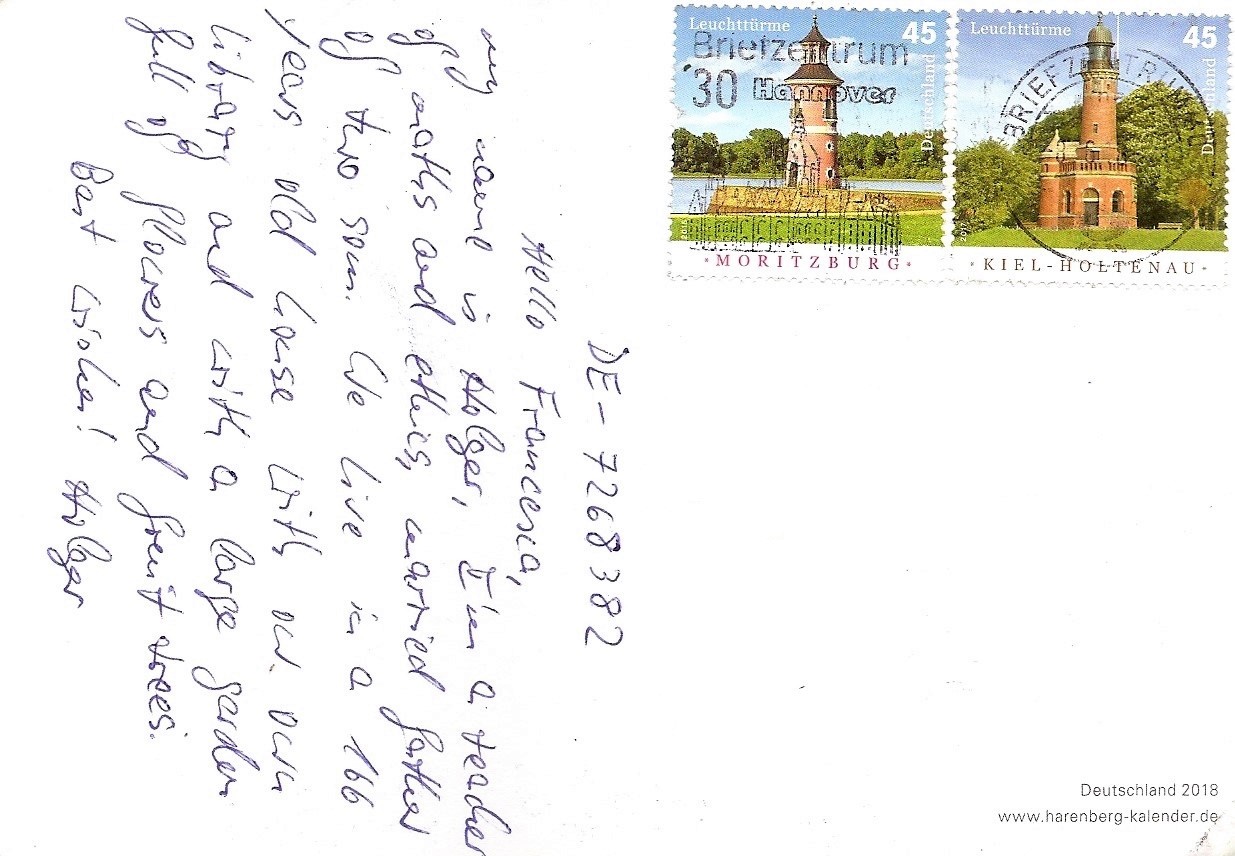 DE-7268382
Hello Francesca,
my name is Holger, I'm a teacher
of maths and ethics, married father
of two sons. We live in a 166
years old house with our own
library and with a large garden
full of flowers and fruit trees.
Best wishes! Holger
Leuchttürme
45
Deutschland
MORITZBURG
Briefzentrum
30 Hannover
Leuchttürme
45
Deutschland
KIEL-HOLTENAU
BRIEFZENTRUM
Deutschland 2018
www.harenberg-kalender.de